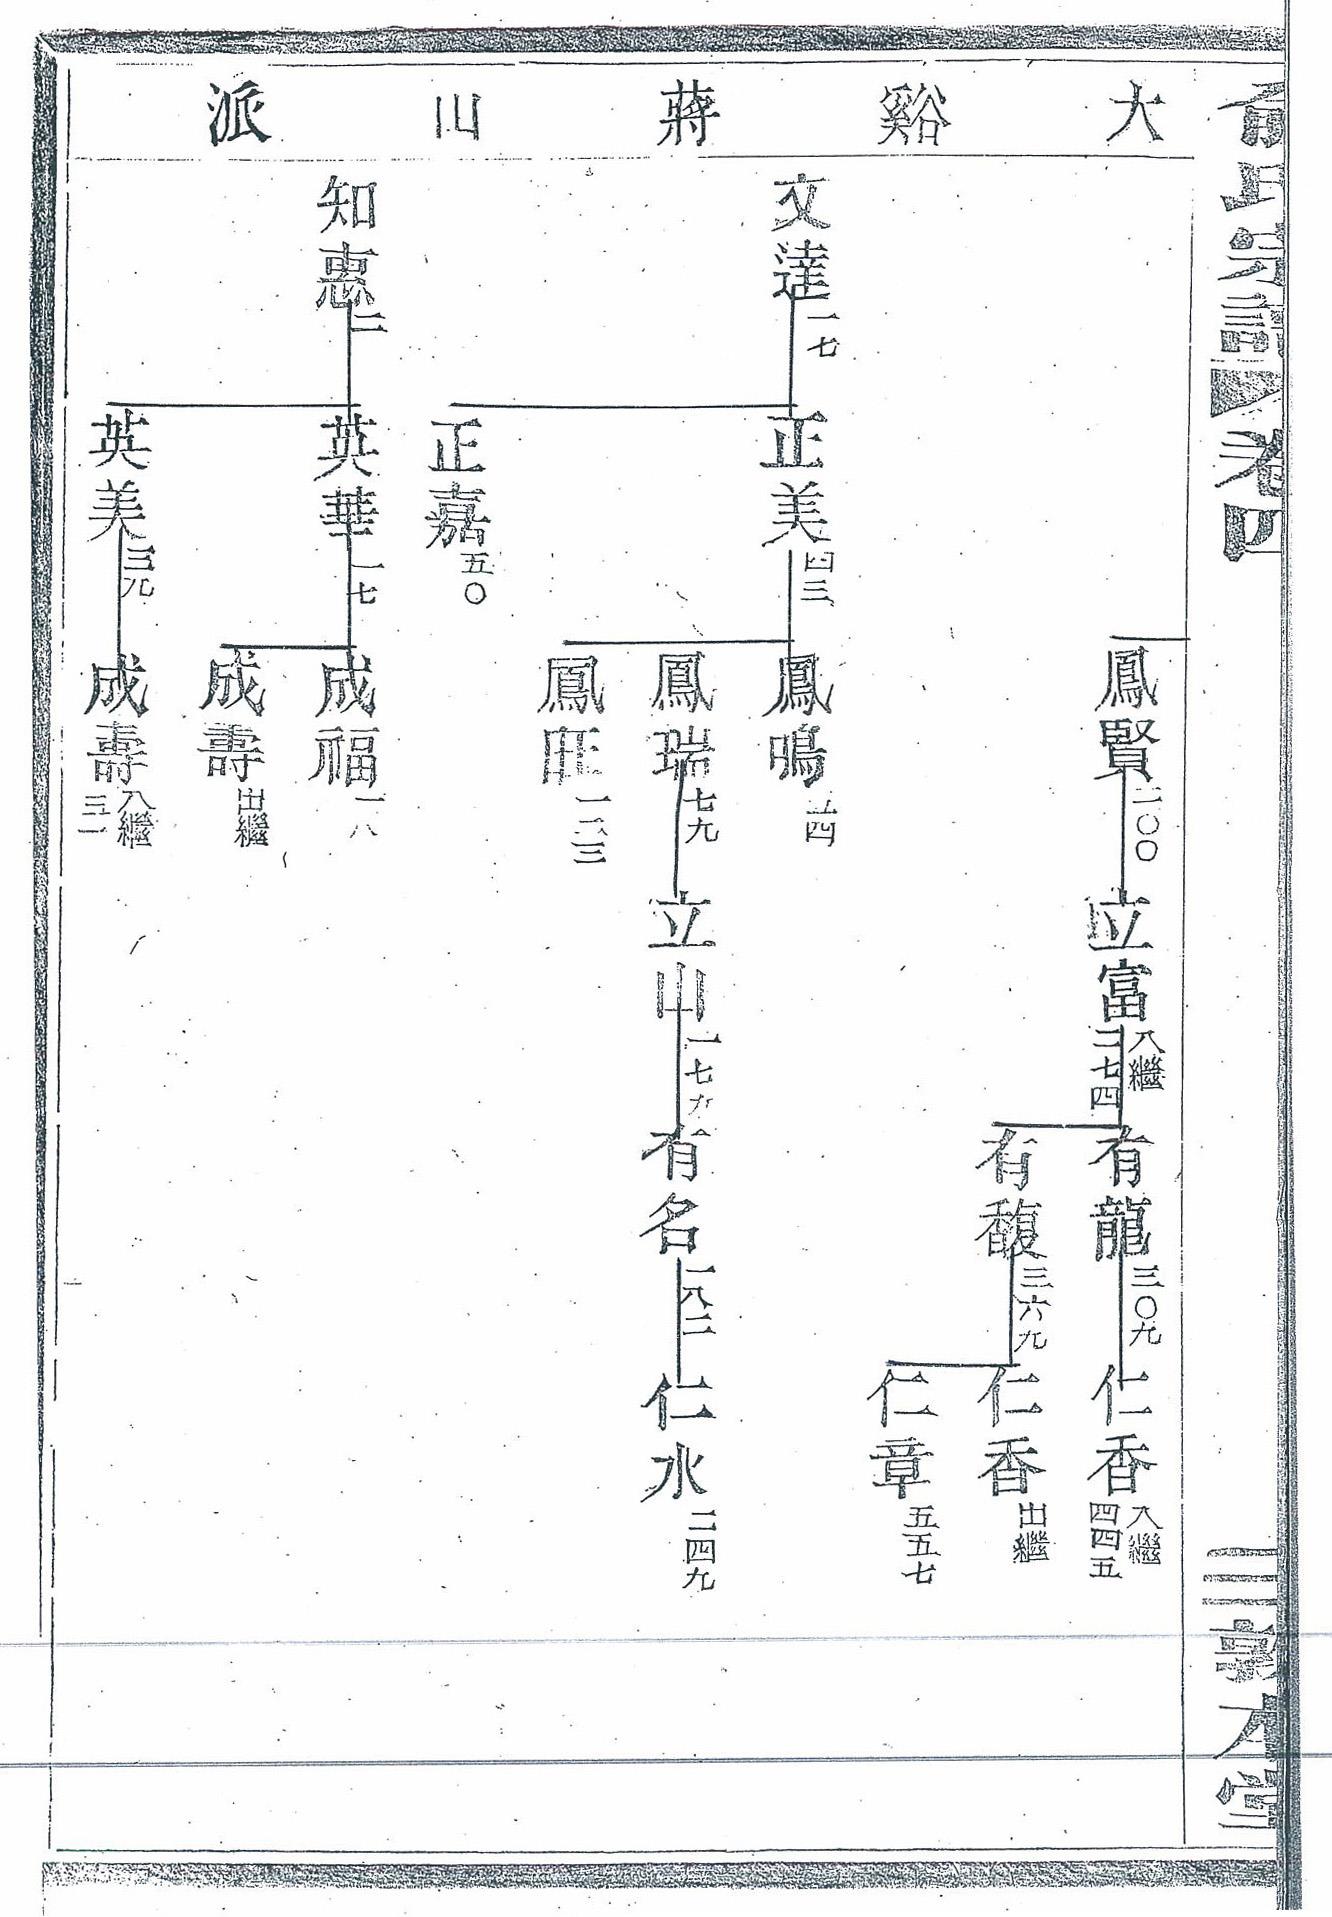 俞氏宗譜 卷四 三 敦本堂
大谿蔣山派
鳳賢 一〇〇
立富 入繼 二七四
有龍 三〇九
仁香 入繼 四四五
有馥 三六九
仁香 出繼
仁章 五五七
文達 一七
正美 四三
鳳鳴 四
鳳瑞 七九
立山 一七六
有名 一八二
仁水 二四九
鳳旺 一二三
正嘉 五〇
知惠 二
英華 一七
成福 一八
成壽 出繼
英美 三九
成壽 入繼 三一